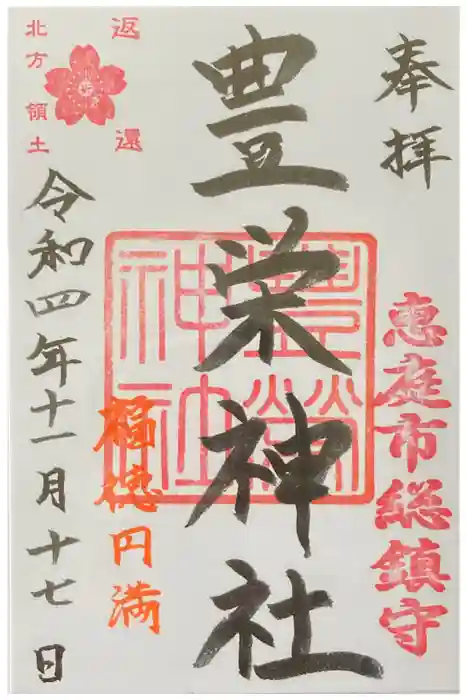 奉拝
恵庭市総鎮守
豊栄神社
豊栄神社
福徳円満
返還
北方領土
令和四年十一月十七日